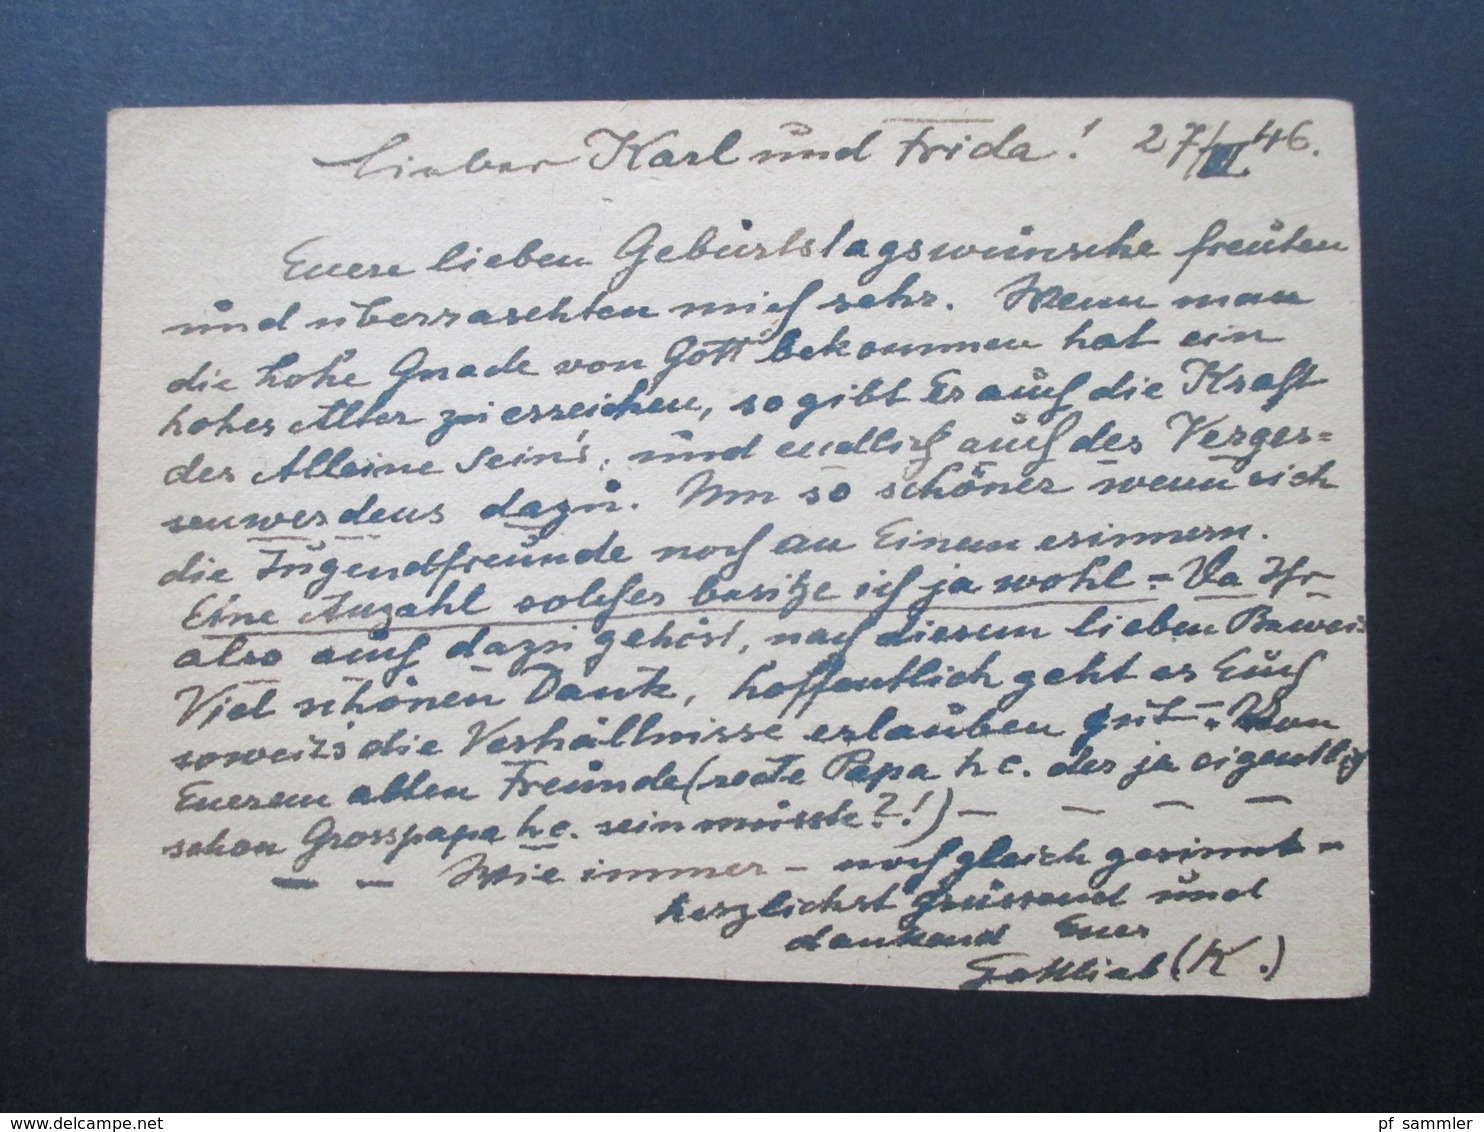 Lieber Karl und Frida! 27/VI.46.
Euere lieben Geburtstagswünsche freuten
und überraschten mich sehr. Wenn man
die hohe Gnade von Gott bekommen hat ein
hohes Alter zu erreichen, so gibt Er auch die Kraft
des Alleine Sein's, und endlich auch des Verges=
senwerdens dazu. Um so schöner wenn sich
die Jugendfreunde noch an Einem erinnern.
Eine Anzahl solches besitze ich ja wohl - Da Ihr
also auch dazu gehört, nach diesem lieben Beweis
Viel schönen Dank, hoffentlich geht es Euch
soweit's die Verhältnisse erlauben gut. - Von
Euerem alten Freunde (recte Papa h c. der ja eigentlich
schon Grosspapa h.c. sein müsste?!) — — — —
— — Wie immer - noch gleich gesinnt -
herzlichst grüssend und
dankend Euer
Gottlieb (K.)
delcampe.net
pf_sammler